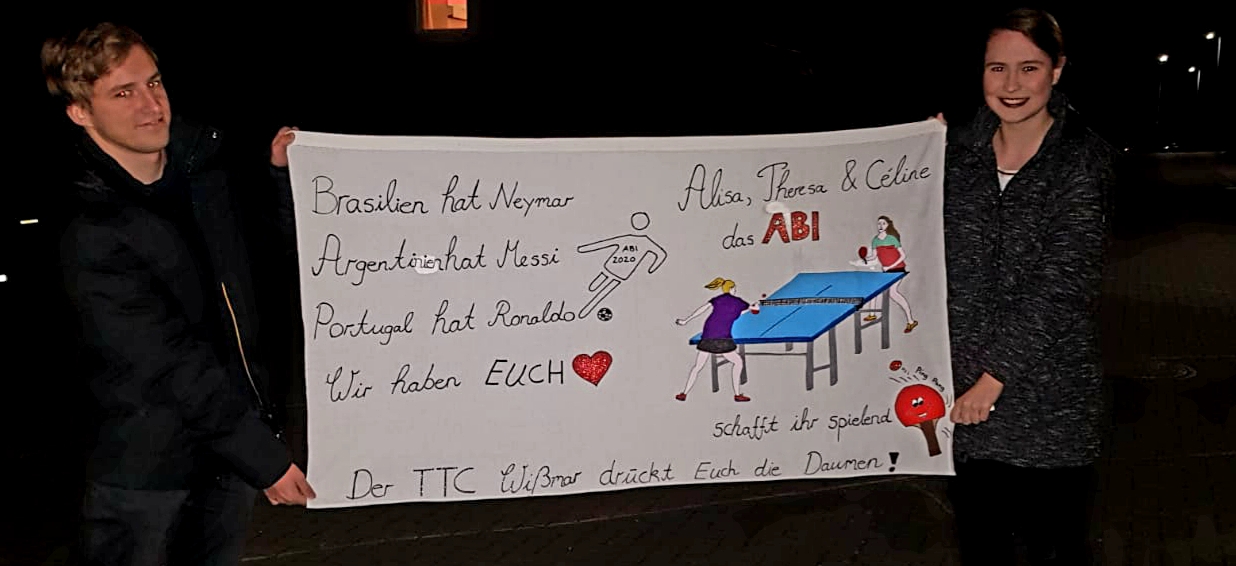 Brasilien hat Neymar
Argentinien hat Messi
Portugal hat Ronaldo
Wir haben EUCH
ABI
2020
Alisa, Theresa & Céline
das ABI
schafft ihr spielend
Ping Pong
Der TTC Wißmar drückt Euch die Daumen!